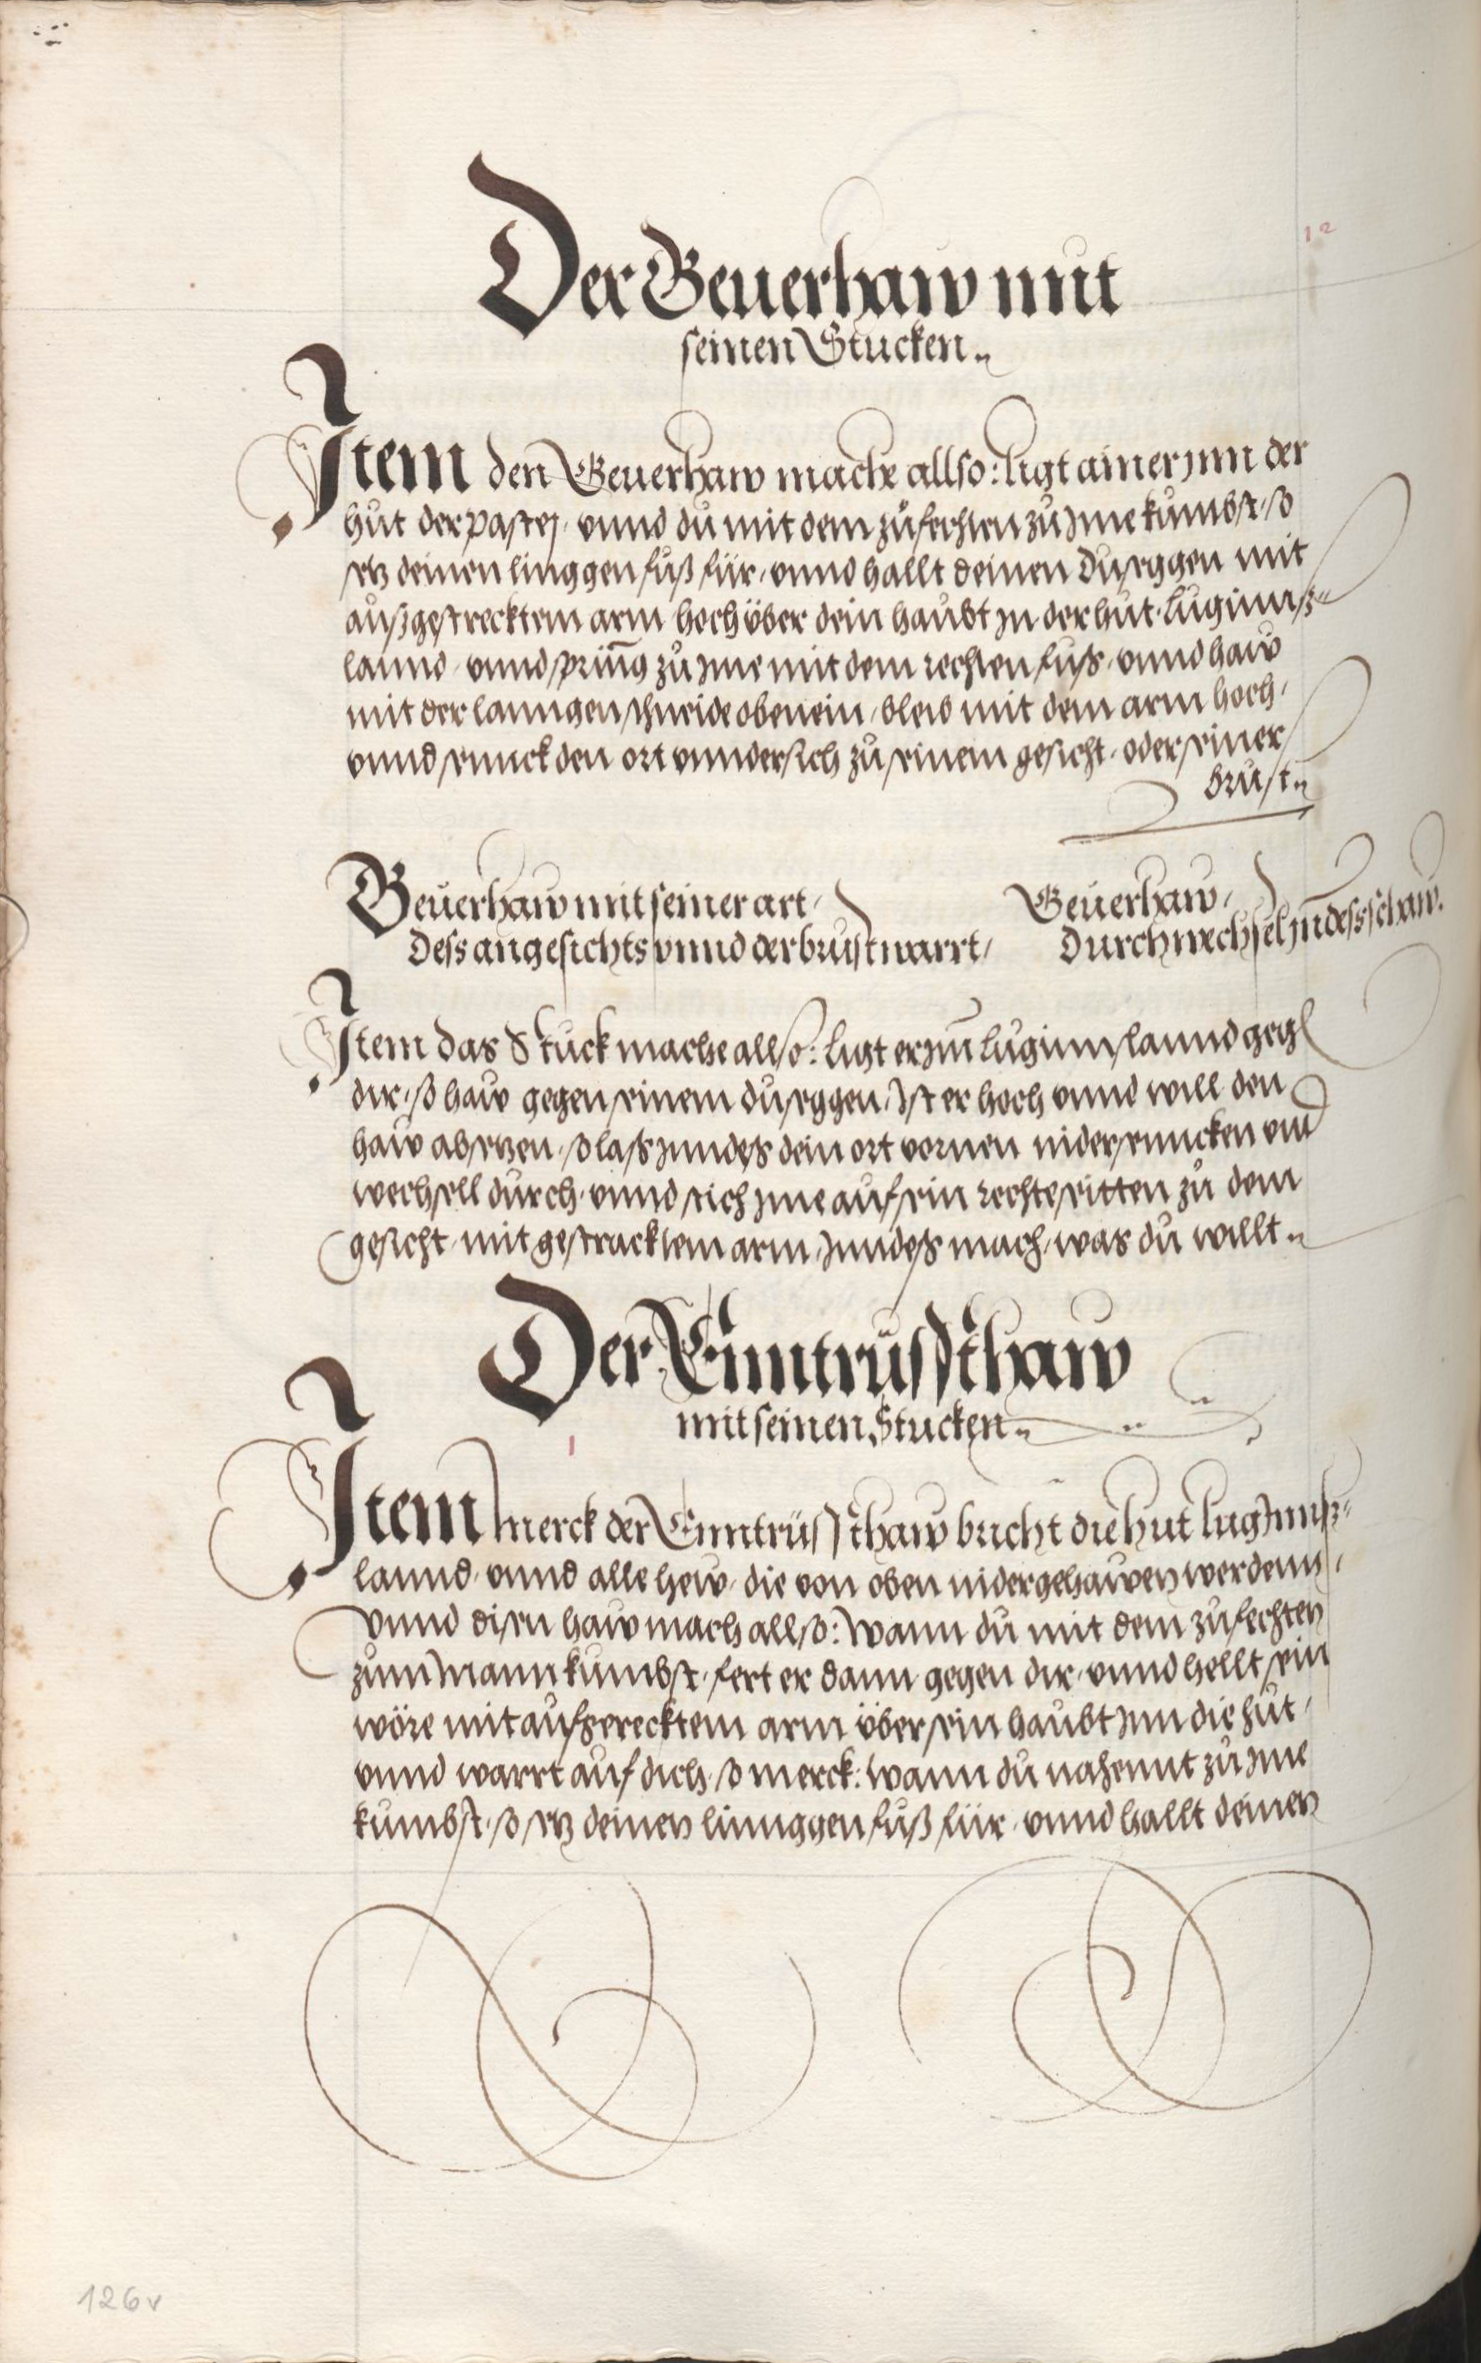 12
Der Geuerhaw mit
seinen Stucken„
Item den Geuerhaw mach allso: ligt ainer jnn der
hut der pastej, vnnd du mit dem zůfechten zů Jme kumbst, so
setz deinen linggen fuß für, vnnd hallt deinen Dusęggen mit
außgestrecktem arm hoch über dein haubt jn der hut, Luginnß„
lannd, vnnd spring zů jme mit dem rechten fuß, vnnd haw
mit der lanngen schneide oben ein, bleib mit dem arm hoch,
vnnd sennck den ort vnndersich zů seinem gesicht, oder seiner
brust„
Geuerhaw mit seiner art,
Dess angesichts vnnd der brust warrt,
Geuerhaw,
Durchwechsel jndess schaw.
Item das Stuck mache allso: ligt er jnn Luginnslannd gegen
dir, so haw gegen seinem duseggen, Ist er hoch vnnd will den
haw absetzen, so laß jnndes dein ort vornen nidersenncken vnd
wechsell durch, vnnd stich jme auf sein rechte seitten zů dem
gesicht, mit gestracktem arm, Jnndeß mach, was du willt„
Der Enntrüsthaw
mit seinen Stucken„
1
Item merck der Enntrüsthaw bricht die hut Lug Jnnß„
lannd, vnnd alle hew, die von oben nidergehawen werdenn,
Vnnd disen haw mach allso: Wann du mit dem zůfechten
zum Mann kumbst, fert er dann gegen dir, vnnd hellt sein
wöre mit aufgerecktem arm über sein haubt jnn die hut,
vnnd warrt auf dich, so merck: Wann du nahennt zů jme
kumbst, so setz deinen linnggen fuß für, vnnd hallt deinen
126v